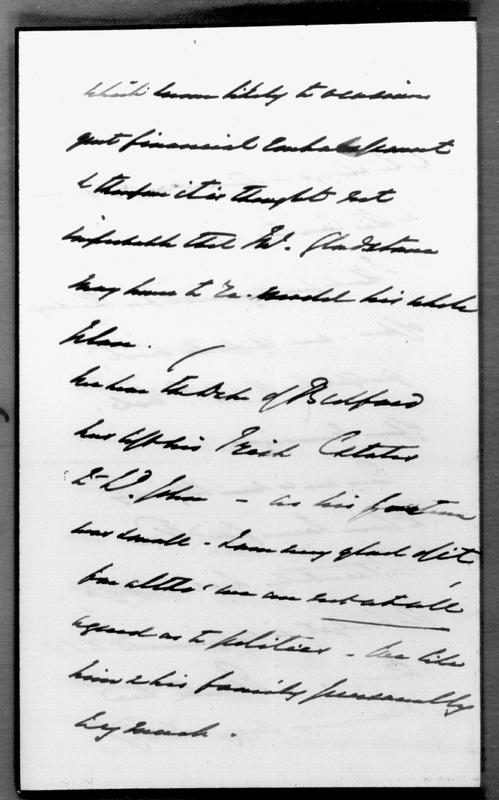 which seems likely to occasion
great financial Embarrassment
& therefore it is thought not
improbable that Mr. Gladstone
may have to re-model his whole
plan.
We hear the Duke of Bedford
has left his Irish Estates
to Ld. John - as his fortune
was small - I am very glad of it
for altho' we are not at all
agreed as to politics - we like
him & his family personally
very much.